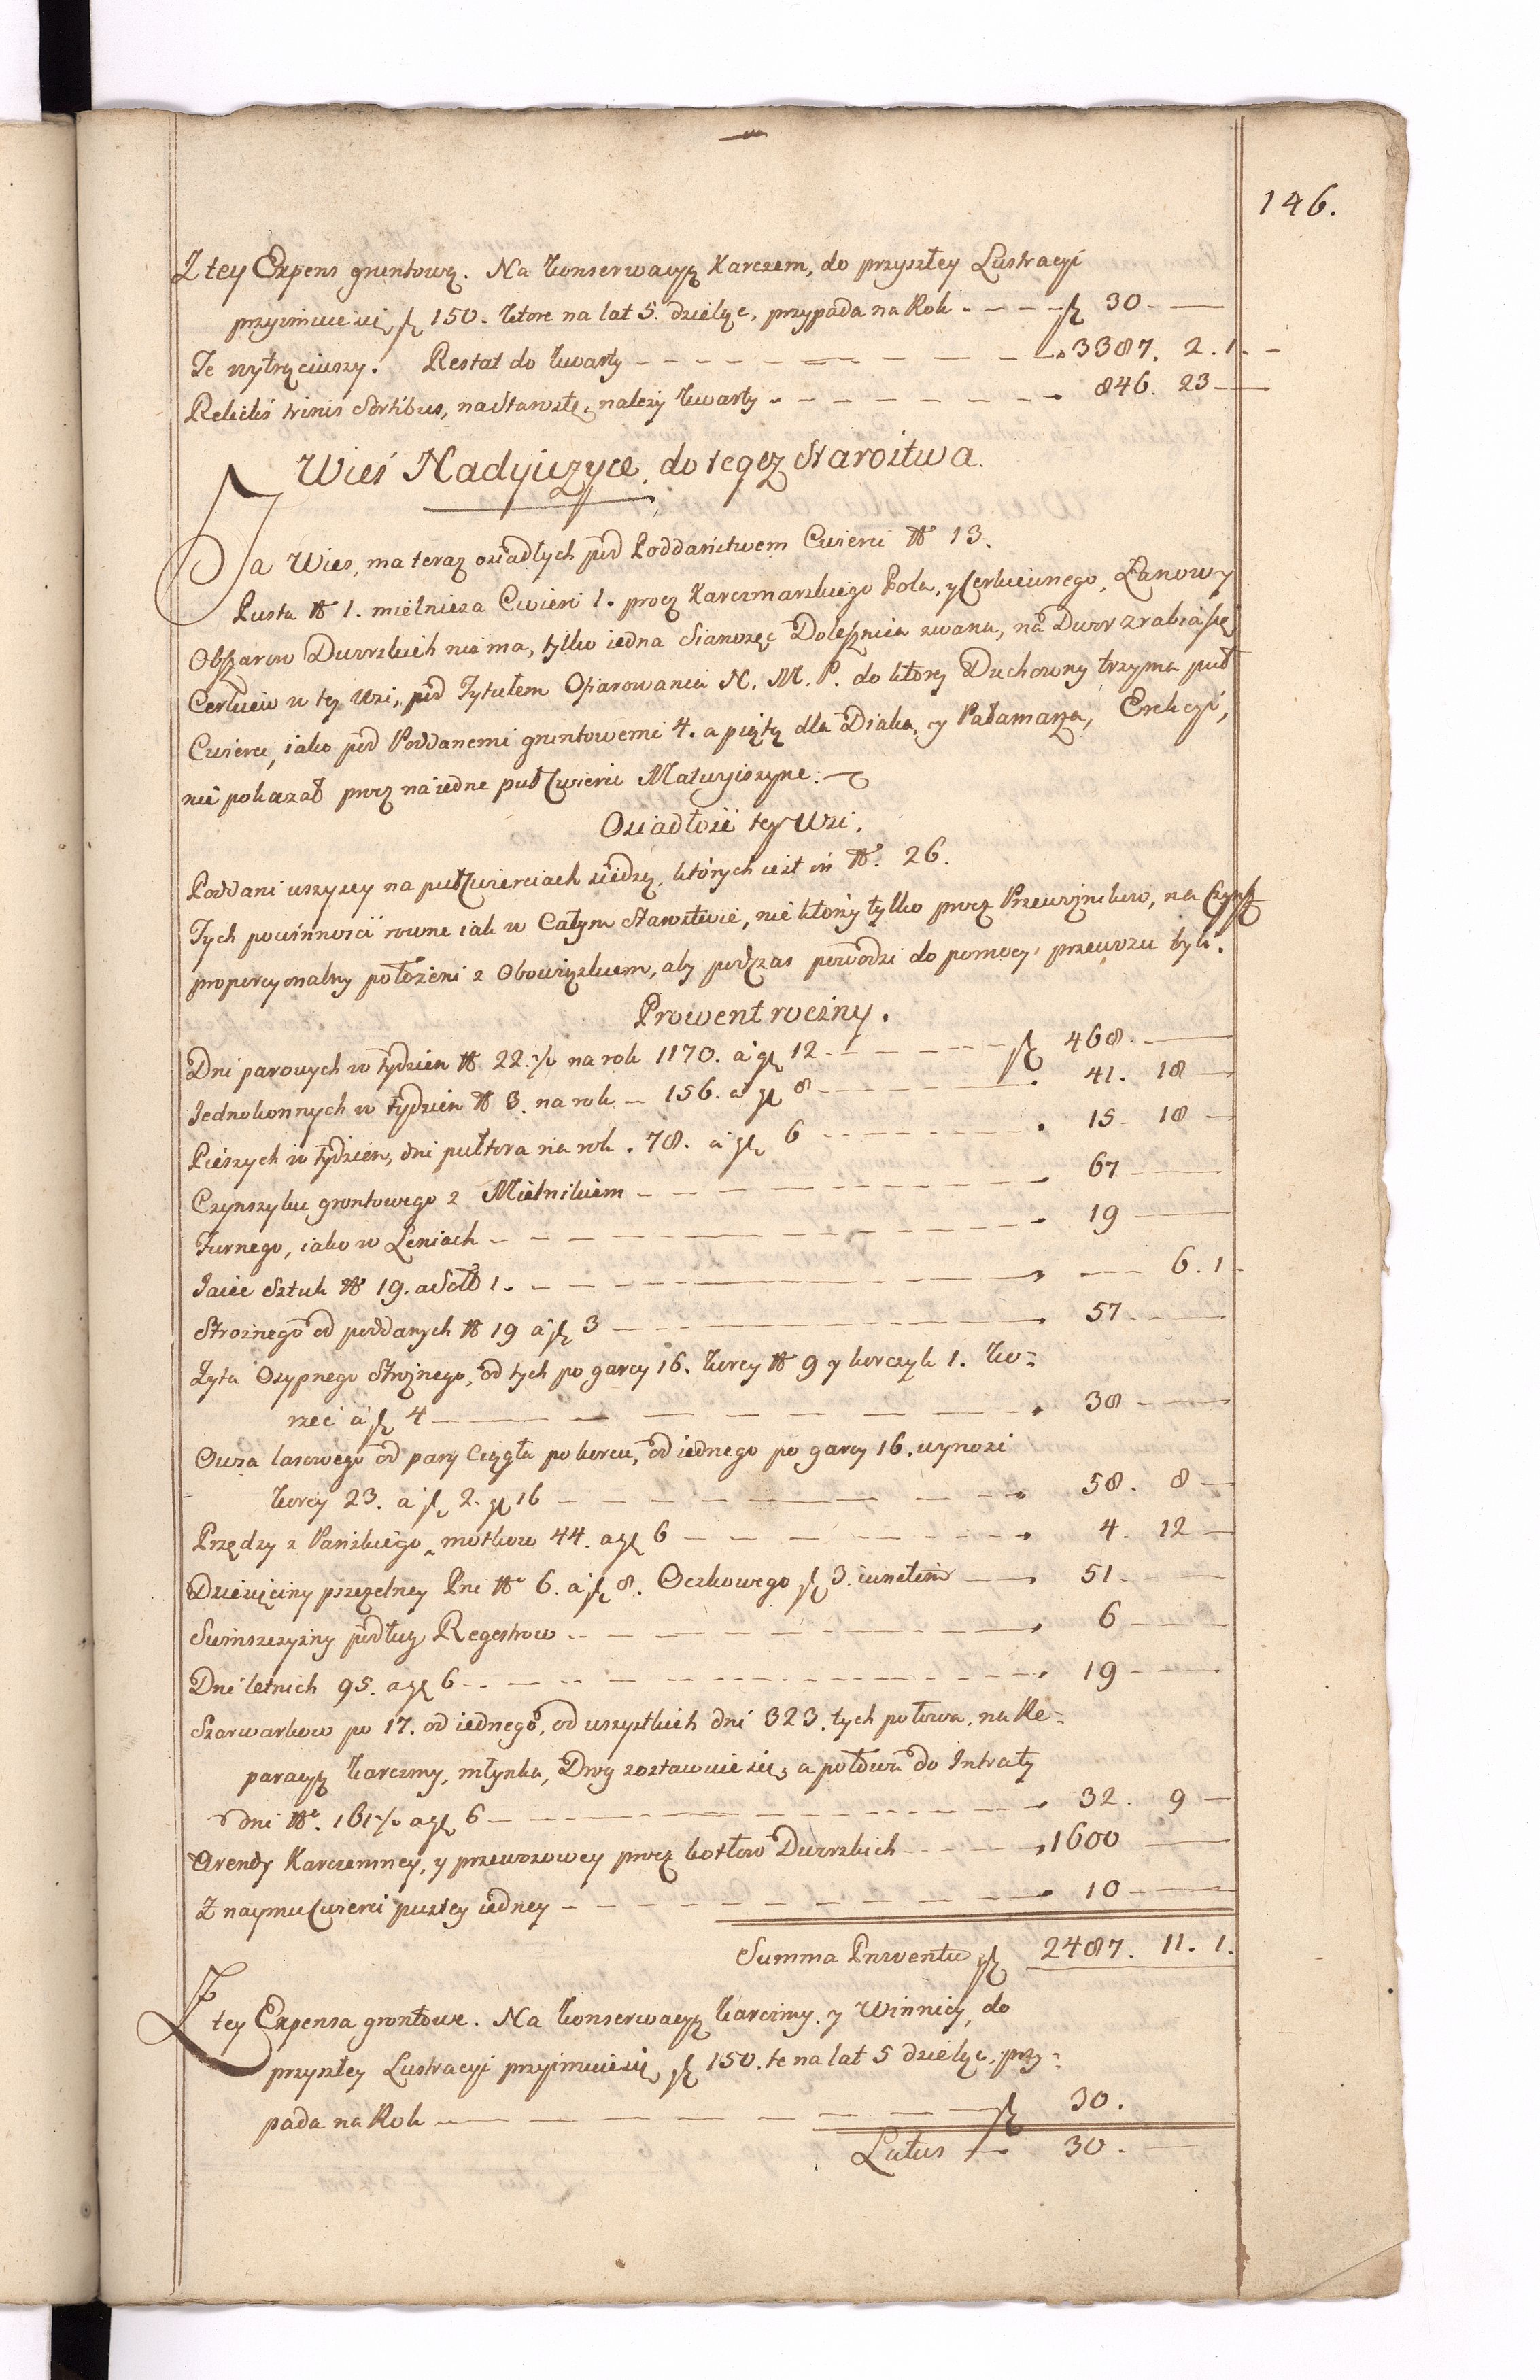 146.
Z tey Expens gruntową. Na konserwacyą Karczem, do przyszłey Lustracyi
przyimuie się fl 150. ktore na lat 5. dzieląc, przypada na Rok - - - fl 30. —
Te wytrąciwszy. Restat do kwarty - - - 3387. 2. 1. -
Relictis trinis Sortibus, na Starostę, należy kwarty - - - 846. 23 —
Wieś Nadyjczyce, do tegoz Starostwa.
Ta Wies, ma teraz osiadłych pod Poddaństwem Cwierci № 13.
Pusta № 1. mielnicza Cwierć 1. procz Karczmarskiego Pola, y Cerkiewnego, Łanow y
Obszarow Dworskich nie ma, tylko iedna Sianożęć Dolesznia zwana, na Dwor zrabia się
Cerkiew w tey Wsi, pod Tytułem Ofiarowania N. M. P. do ktorey Duchowny trzyma puł
Cwierci, iako pod Poddanemi gruntowemi 4. a piątą dla Diaka, y Pałamarza, Erekcyi,
nie pokazał procz na iedne puł Cwierci Matwyiszyne.
Osiadłość tey Wsi.
Poddani wszyscy na puł Cwierciach siedzą, których iest in №. 26.
Tych powinności rowne iak w Całym Starostwie, niektorzy tylko procz Przewoznikow, na Czynsz
proporcyonalny położeni z Obowiązkiem, aby podczas powodzi do pomocy przewozu byli.
Prowent roczny.
Dni parowych w tydzien № 22 ½ na rok 1170. a gl 12. - - - fl 468. —
Jednokonnych w tydzien № 3. na rok - 156. a gl 8 - - - 41. 18 —
Pieszych w tydzien, dni pułtora na rok. 78. a gl 6 - - - 15. 18 —
Czynszyku gruntowego z Mielnikiem - - - 67 —
Furnego, iako w Leniach - - - 19 —
Jaiec Sztuk № 19. a Solb 1. - - - — 6. 1
Strożnego od poddanych № 19 a fl 3 - - - 57. —
Żyta Osypnego Strożnego, od tych po garcy 16. korcy № 9 y korczyk 1. ko=
rzec a fl 4 - - - 38 —
Owsa lasowego od pary Ciągła po korcu, od iednego po garcy 16. wynosi
korcy 23. a fl 2. gl 16 - - - 58. 8 —
Przędzy z Pańskiego, motkow 44. a gl 6 - - - 4. 12 —
Dziesięciny pszczelney Pni № 6. a fl 8. Oczkowego fl 3. iunctim - - - 51. —
Swinszczyzny podług Regestrow - - - 6 —
Dni letnich 95. a gl 6 - - - 19 —
Szarwarkow po 17. od iednego, od wszystkich dni 323. tych połowa, na Re=
paracyą karczmy, młynka, Drog zostawuie się, a połowa do Intraty
dni №. 161 ½ a gl 6 - - - 32. 9 —
Arendy Karczemney, y przewozowey procz kotłow Dworskich - - - 1600 —
Z naymu Cwierci pustey iedney - - - 10 —
Summa Prowentu fl 2487. 11. 1.
Z tey Expensa gruntowe. Na konserwacyą karczmy, y Winnicy, do
przyszłey Lustracyi przyimuie się fl 150. te na lat 5 dzieląc, przy=
pada na Rok - - - fl 30.
Latus — 30. —